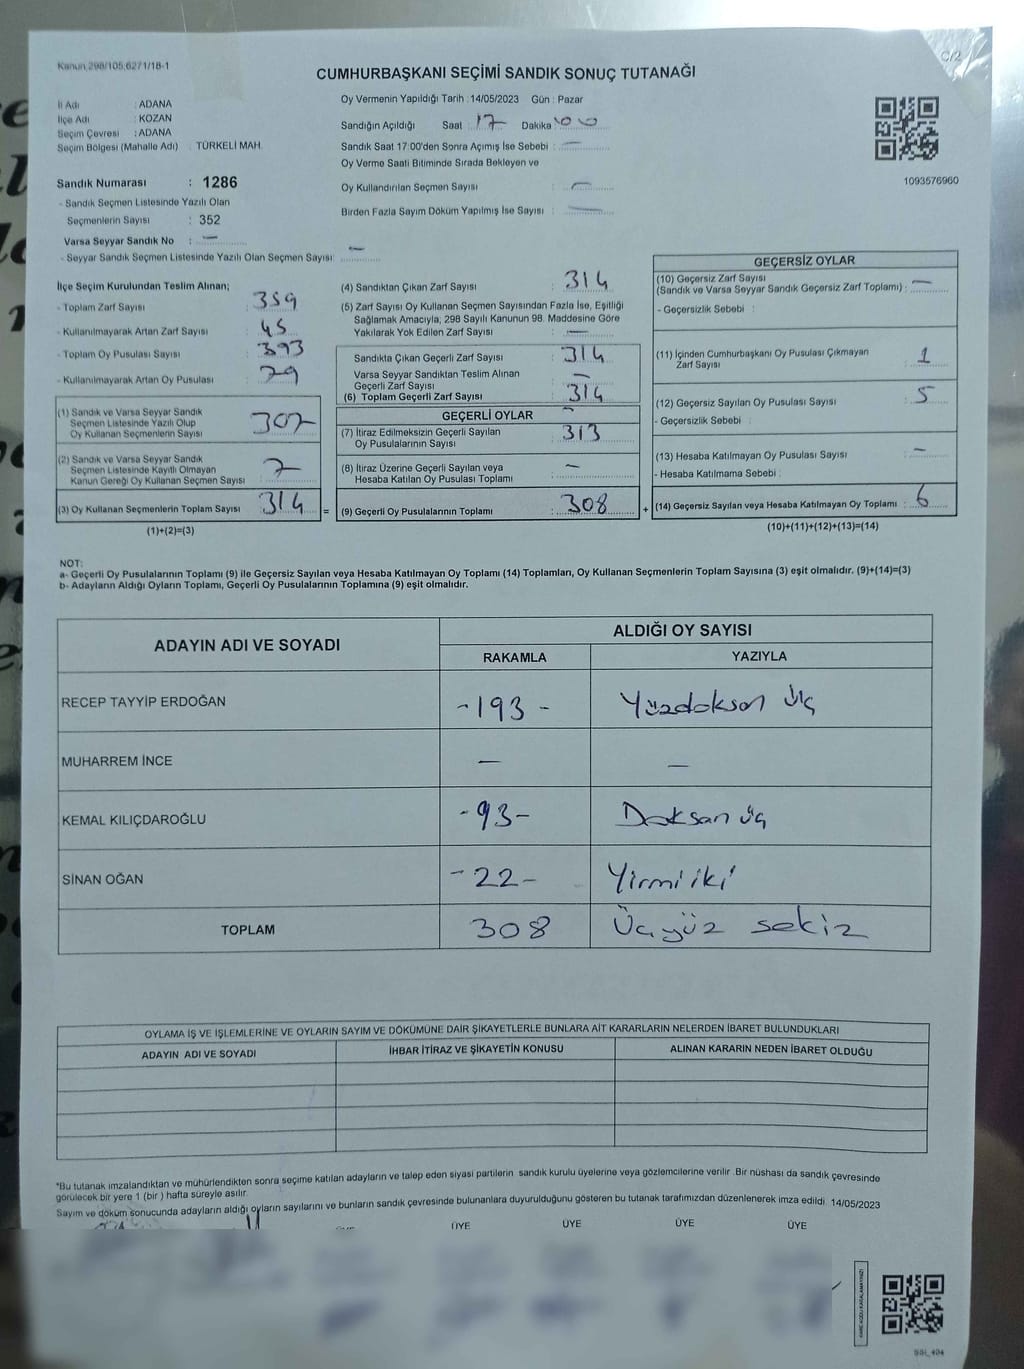 Kanun 298/105;6271/18-1
C/2
CUMHURBAŞKANI SEÇİMİ SANDIK SONUÇ TUTANAĞI
İl Adı : ADANA
İlçe Adı : KOZAN
Seçim Çevresi : ADANA
Seçim Bölgesi (Mahalle Adı) : TÜRKELİ MAH.
Sandık Numarası : 1286
- Sandık Seçmen Listesinde Yazılı Olan
Seçmenlerin Sayısı : 352
Varsa Seyyar Sandık No : —
- Seyyar Sandık Seçmen Listesinde Yazılı Olan Seçmen Sayısı: —
Oy Vermenin Yapıldığı Tarih : 14/05/2023 Gün : Pazar
Sandığın Açıldığı Saat : 17 Dakika : 00
Sandık Saat 17:00'den Sonra Açımış İse Sebebi : —
Oy Verme Saati Bitiminde Sırada Bekleyen ve
Oy Kullandırılan Seçmen Sayısı : —
Birden Fazla Sayım Döküm Yapılmış İse Sayısı : —
1093576960
İlçe Seçim Kurulundan Teslim Alınan;
- Toplam Zarf Sayısı : 359
- Kullanılmayarak Artan Zarf Sayısı : 45
- Toplam Oy Pusulası Sayısı : 393
- Kullanılmayarak Artan Oy Pusulası : 79
(1) Sandık ve Varsa Seyyar Sandık
Seçmen Listesinde Yazılı Olup
Oy Kullanan Seçmenlerin Sayısı : 307
(2) Sandık ve Varsa Seyyar Sandık
Seçmen Listesinde Kayıtlı Olmayan
Kanun Gereği Oy Kullanan Seçmen Sayısı : 7
(3) Oy Kullanan Seçmenlerin Toplam Sayısı : 314
(1)+(2)=(3)
=
(4) Sandıktan Çıkan Zarf Sayısı : 314
(5) Zarf Sayısı Oy Kullanan Seçmen Sayısından Fazla İse, Eşitliği
Sağlamak Amacıyla, 298 Sayılı Kanunun 98. Maddesine Göre
Yakılarak Yok Edilen Zarf Sayısı : —
Sandıkta Çıkan Geçerli Zarf Sayısı : 314
Varsa Seyyar Sandıktan Teslim Alınan
Geçerli Zarf Sayısı : —
(6) Toplam Geçerli Zarf Sayısı : 314
GEÇERLİ OYLAR
(7) İtiraz Edilmeksizin Geçerli Sayılan
Oy Pusulalarının Sayısı : 313
(8) İtiraz Üzerine Geçerli Sayılan veya
Hesaba Katılan Oy Pusulası Toplamı : —
(9) Geçerli Oy Pusulalarının Toplamı : 308
+
GEÇERSİZ OYLAR
(10) Geçersiz Zarf Sayısı
(Sandık ve Varsa Seyyar Sandık Geçersiz Zarf Toplamı) : —
- Geçersizlik Sebebi :
(11) İçinden Cumhurbaşkanı Oy Pusulası Çıkmayan
Zarf Sayısı : 1
(12) Geçersiz Sayılan Oy Pusulası Sayısı : 5
- Geçersizlik Sebebi :
(13) Hesaba Katılmayan Oy Pusulası Sayısı : —
- Hesaba Katılmama Sebebi :
(14) Geçersiz Sayılan veya Hesaba Katılmayan Oy Toplamı : 6
(10)+(11)+(12)+(13)=(14)
NOT:
a- Geçerli Oy Pusulalarının Toplamı (9) ile Geçersiz Sayılan veya Hesaba Katılmayan Oy Toplamı (14) Toplamları, Oy Kullanan Seçmenlerin Toplam Sayısına (3) eşit olmalıdır. (9)+(14)=(3)
b- Adayların Aldığı Oyların Toplamı, Geçerli Oy Pusulalarının Toplamına (9) eşit olmalıdır.
ADAYIN ADI VE SOYADI
ALDIĞI OY SAYISI
RAKAMLA YAZIYLA
RECEP TAYYİP ERDOĞAN -193- Yüzdoksan üç
MUHARREM İNCE — —
KEMAL KILIÇDAROĞLU -93- Doksan üç
SİNAN OĞAN -22- Yirmi iki
TOPLAM 308 Üçyüz sekiz
OYLAMA İŞ VE İŞLEMLERİNE VE OYLARIN SAYIM VE DÖKÜMÜNE DAİR ŞİKAYETLERLE BUNLARA AİT KARARLARIN NELERDEN İBARET BULUNDUKLARI
ADAYIN ADI VE SOYADI İHBAR İTİRAZ VE ŞİKAYETİN KONUSU ALINAN KARARIN NEDEN İBARET OLDUĞU
*Bu tutanak imzalandıktan ve mühürlendikten sonra seçime katılan adayların ve talep eden siyasi partilerin sandık kurulu üyelerine veya gözlemcilerine verilir. Bir nüshası da sandık çevresinde
görülecek bir yere 1 (bir) hafta süreyle asılır.
Sayım ve döküm sonucunda adayların aldığı oyların sayılarını ve bunların sandık çevresinde bulunanlara duyurulduğunu gösteren bu tutanak tarafımızdan düzenlenerek imza edildi. 14/05/2023
ÜYE ÜYE ÜYE ÜYE